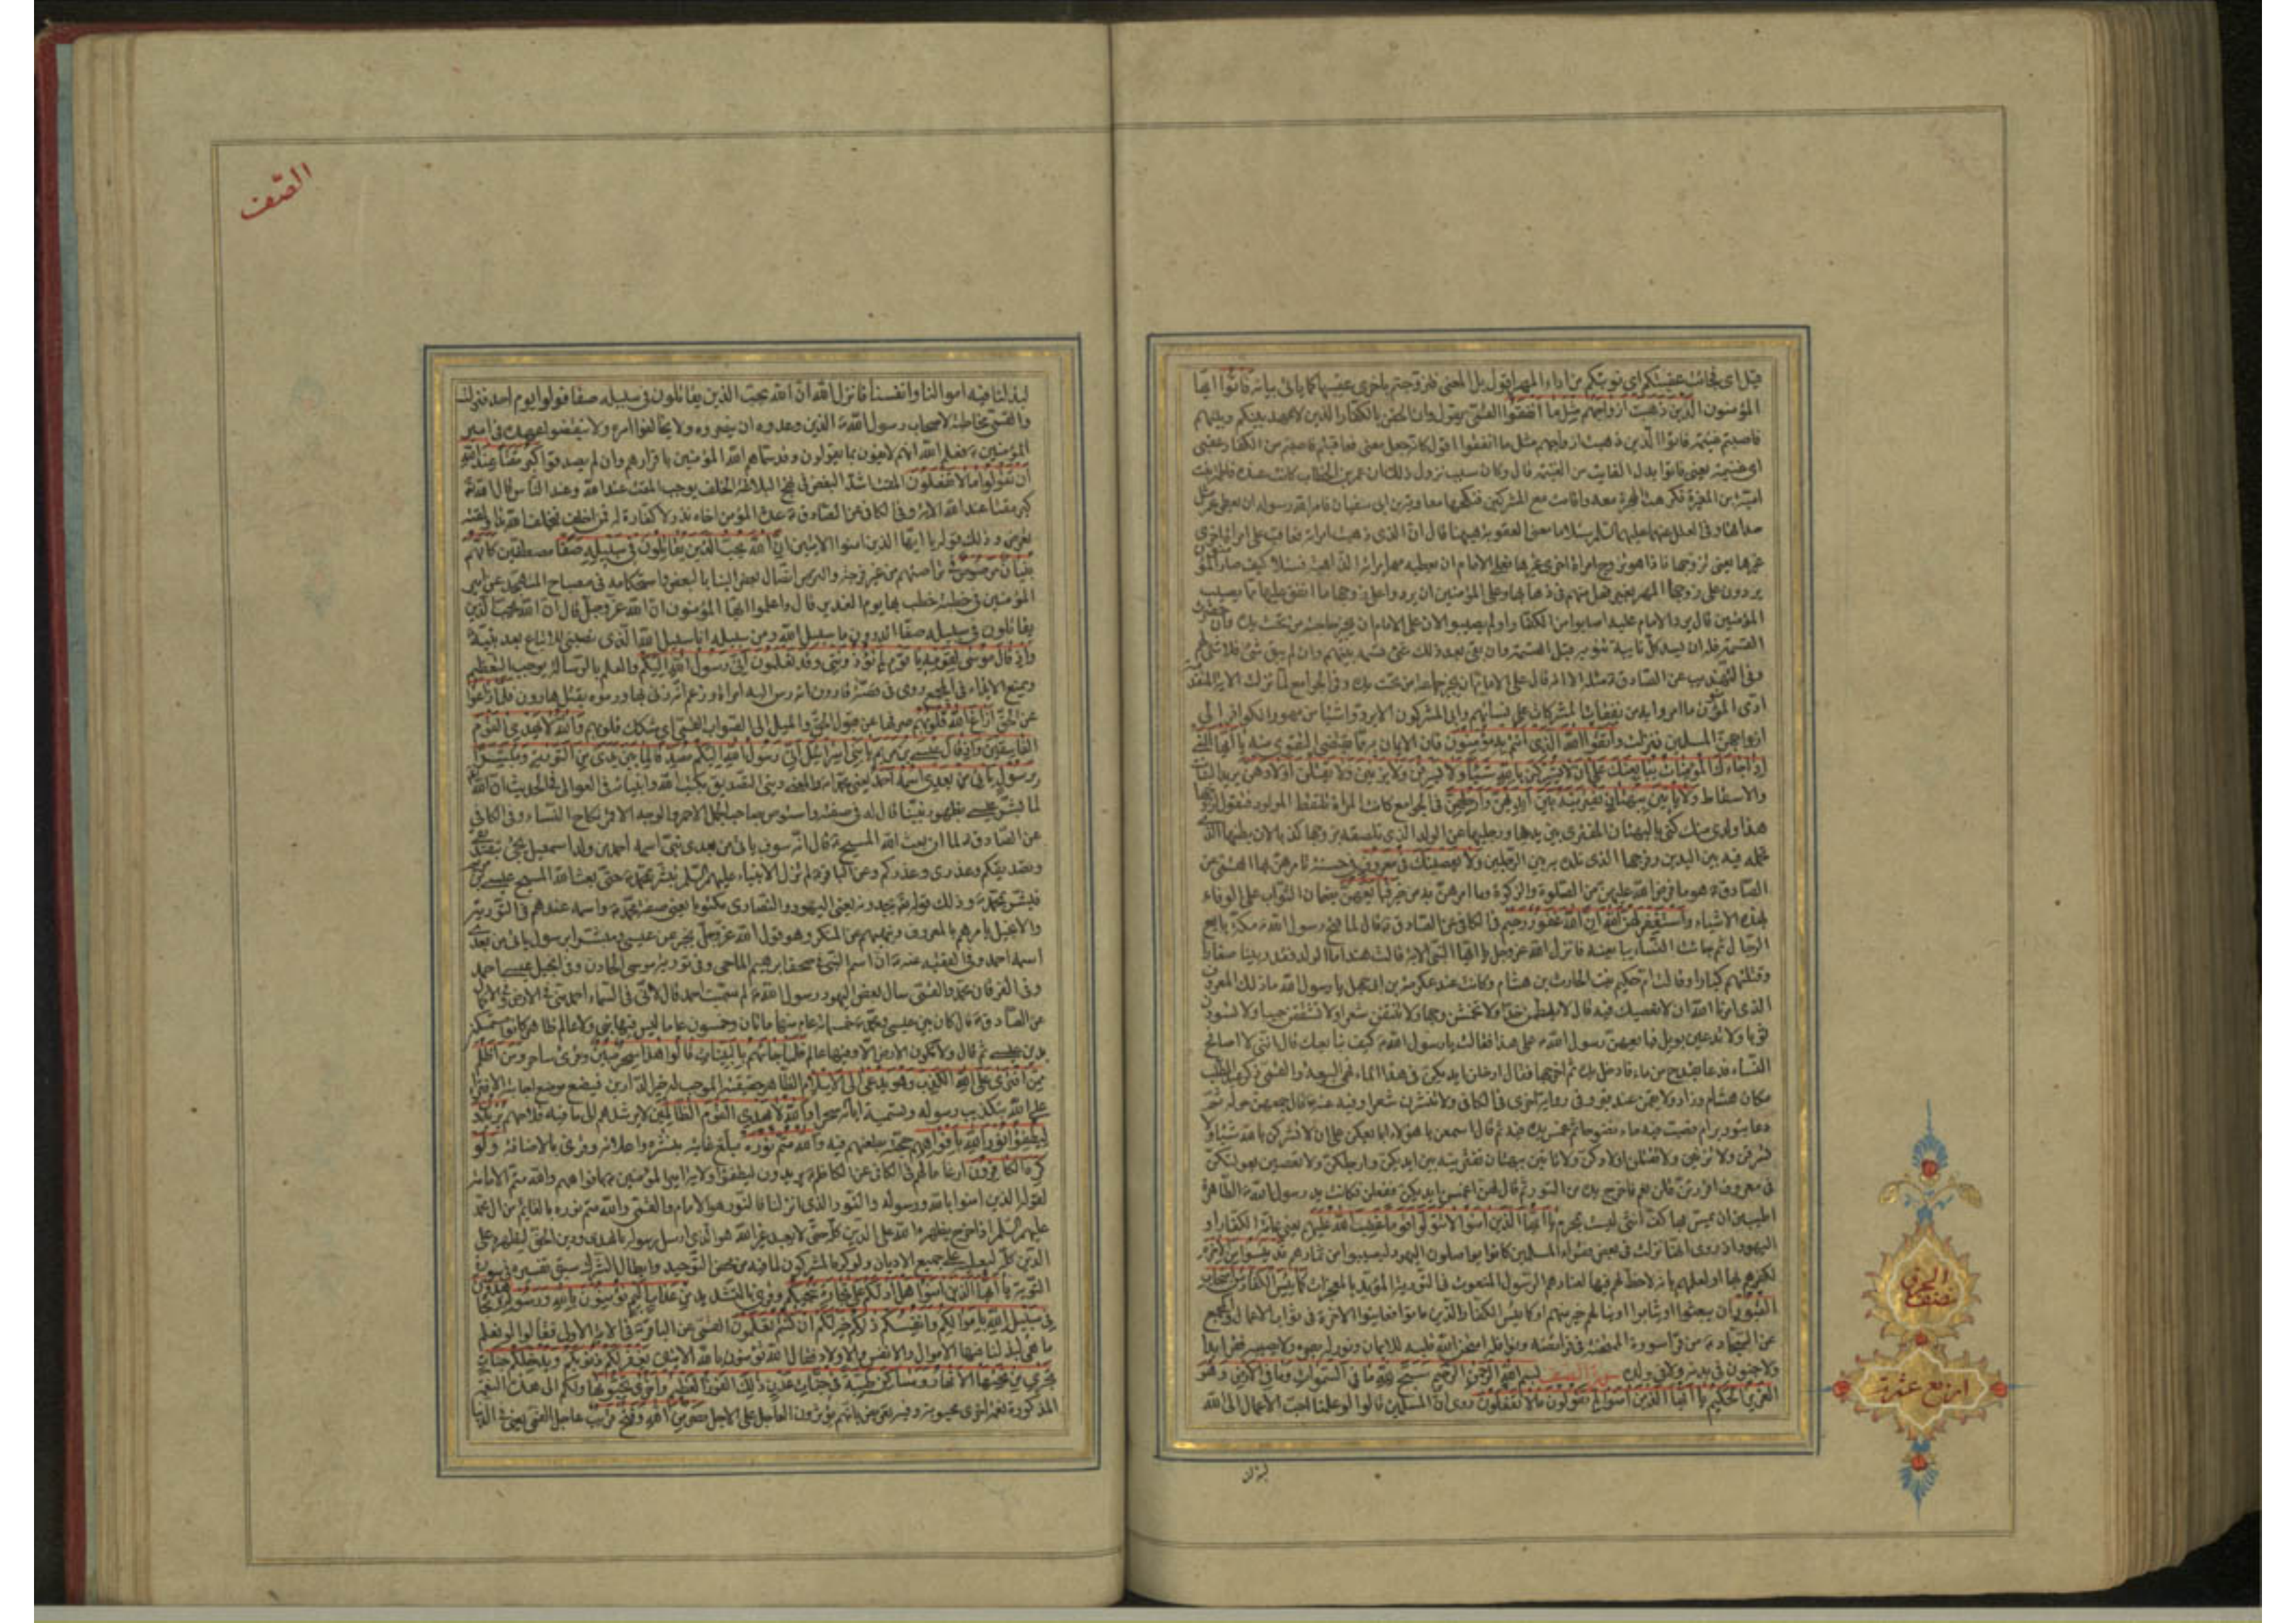 قيل اى فجائت عقبتكم اى نوبتكم من اداء المهر اقول بل المعنى فتزوجتم باخرى عقيبها كما يأتى بيانه فَاتُوا ايها
المؤمنون الَّذينَ ذَهَبَت اَزواجُهُم مِثلَ ما اَنفَقُوا القمّى يقول وان لحقن بالكفار الذين لا عهد بينكم وبينهم
فاصبتم غنيمة فاتوا الذين ذهبت ازواجهم مثل ما انفقوا
اى غنيمة يعنى فاتوا بدل الفايت من الغنيمة قال وكان سبب نزول ذلك ان عمر بن الخطاب كانت عنده فاطمة بنت
معه واقامت مع المشركين فنكحها معاوية بن ابى سفيان فامر الله رسوله ان يعطى عمر مثل
صداقها وفى العلل عنهما عليهما السلم
غيرها يعنى تزوجها فاذا هو تزوج امراة اخرى غيرها فعلى الامام ان يعطيه مهر امرأته الذاهبة فسئلا كيف صار المؤمنون
يردون على زوجها المهر بغير فعل منهم فى ذهابها وعلى المؤمنين ان يردوا على زوجها ما انفق عليها مما يصيب
المؤمنين قال يرد الامام عليه اصابوا من الكفار او لم يصيبوا لان على الامام ان يجيز حاجته من تحت يده وان حضرت
القسمة فله ان يسد كل نايبة تنوبه قبل القسمة وان بقى بعد ذلك شئ قسمه بينهم وان لم يبق شئ فلا شئ لهم
وفى التهذيب عن الصادق مثله الا انه قال على الامام ان يجيز جماعة من تحت يده وفى الجوامع لما نزلت الاية المتقدمة
ادى المؤمنون ما امروا به من نفقات المشركات على نسائهم وابى المشركون ان يردوا شيئا من مهور الكوافر الى
ازواجهن المسلمين فنزلت وَاتَّقُوا اللهَ الَّذى اَنتُم بِهِ مُؤمِنُونَ فان الايمان به مما يقتضى التقوى منه يا اَيُّهَا النَّبِىُّ
اِذا جاءَكَ المُؤمِناتُ يُبايِعنَكَ عَلى اَن لا يُشرِكنَ بِاللهِ شَيئًا وَلا يَسرِقنَ وَلا يَزنينَ وَلا يَقتُلنَ اَولادَهُنَّ يريد البنات
والاسقاط وَلا يَأتينَ بِبُهتانٍ يَفتَرينَهُ بَينَ اَيديهِنَّ وَاَرجُلِهِنَّ فى الجوامع كانت المرأة تلتقط المولود فتقول لزوجها
هذا ولدى منك كنى بالبهتان المفترى بين يديها ورجليها عن الولد الذى تلصقه بزوجها كذبا لان بطنها الذى
تحمله فيه بين اليدين وفرجها الذى تلده به بين الرجلين وَلا يَعصينَكَ فى مَعرُوفٍ فى حسنة تامرهن بها القمى عن
الصادق هو ما فرض الله عليهن من الصلوة والزكوة وما امرهن به من خير فَبايِعهُنَّ بضمان الثواب على الوفاء
بهذه الاشياء وَاستَغفِر لَهُنَّ اللهَ اِنَّ اللهَ غَفُورٌ رَحيمٌ فى الكافى عن الصادق قال لما فتح رسول الله مكة بايع
الرجال ثم جائت النساء يبايعنه فانزل الله عز وجل يا ايها النبى الاية قالت هند اما الولد فقد ربينا صغارا
وقتلتهم كبارا وقالت ام حكيم بنت الحارث بن هشام وكانت عند عكرمة بن ابى جهل يا رسول الله ما ذلك المعروف
الذى امرنا الله ان لا نعصيك فيه قال لا تلطمن خدا ولا تخمشن وجها ولا تنتفن شعرا ولا تشققن جيبا ولا تسودن
ثوبا ولا تدعين بويل فبايعهن رسول الله على هذا فقالت يا رسول الله كيف نبايعك قال اننى لا اصافح
النساء فدعا بقدح من ماء فادخل يده ثم اخرجها فقال ادخلن ايديكن فى هذا الماء فهى البيعة والقمى ذكر
وفى رواية اخرى فى الكافى ولا تنشرن شعرا وفيه عنه قال جمعهن حوله ثم
دعا بتور برام فصب فيه ماء نضوحا ثم غمس يده فيه ثم قال اسمعن يا هؤلاء ابايعكن على ان لا تشركن بالله شيئا ولا
تسرقن ولا تزنين ولا تقتلن اولادكن ولا تاتين ببهتان تفترينه بين ايديكن وارجلكن ولا تعصين بعولتكن
فى معروف اقررتن قلن نعم فاخرج يده من التور ثم قال لهن اغمسن ايديكن ففعلن فكانت يد رسول الله الطاهرة
اطيب من ان يمس بها كف انثى ليست بمحرم يا اَيُّهَا الَّذينَ امَنُوا لا تَتَوَلَّوا قَومًا غَضِبَ اللهُ عَلَيهِم يعنى عامة الكفار او
اليهود اذ روى انها نزلت فى بعض فقراء المسلمين كانوا يواصلون اليهود ليصيبوا من ثمارهم قَد يَئِسُوا مِنَ الاخِرَةِ
لكفرهم بها او لعلمهم بانه لا حظ لهم فيها لعنادهم الرسول المنعوت فى التورية المؤيد بالمعجزات كَما يَئِسَ الكُفّارُ مِن اَصحابِ
القُبُورِ ان يبعثوا او يثابوا او ينالهم خير منهم او كما يئس الكفار الذين ماتوا فعاينوا الاخرة فى ثواب الاعمال والمجمع
عن السجاد من قرأ سورة الممتحنة فى فرائضه ونوافله امتحن الله قلبه للايمان ونور له بصره ولا يصيبه فقر ابدا
ولا جنون فى بدنه ولا فى ولده سورة الصف بِسمِ اللهِ الرَّحمنِ الرَّحيمِ سَبَّحَ لِلّهِ ما فِى السَّمواتِ وَما فِى الاَرضِ وَهُوَ
العَزيزُ الحَكيمُ يا اَيُّهَا الَّذينَ امَنُوا لِمَ تَقُولُونَ ما لا تَفعَلُونَ روى ان المسلمين قالوا لو علمنا احب الاعمال الى الله
لبذلنا
الحزب
نصف
اربع عشرة
الصّف
لبذلنا فيه اموالنا وانفسنا فانزل الله ان الله يحب الذين يقاتلون فى سبيله صفا فولوا يوم احد فنزلت
والقمى مخاطبة لاصحاب رسول الله الذين وعدوه ان ينصروه ولا يخالفوا امره ولا ينقضوا عهده فى امير
المؤمنين فعلم الله انهم لا يفون بما يقولون وقد سماهم الله المؤمنين باقرارهم وان لم يصدقوا كَبُرَ مَقتًا عِندَ اللهِ
اَن تَقُولُوا ما لا تَفعَلُونَ المقت اشد البغض فى نهج البلاغة الخلف يوجب المقت عند الله وعند الناس قال الله تعالى
كبر مقتا عند الله الاية وفى الكافى عن الصادق عدة المؤمن اخاه نذر لا كفارة له فمن اخلف فبخلف الله بدأ ولمقته
تعرض وذلك قوله يا ايها الذين امنوا الايتين اِنَّ اللهَ يُحِبُّ الَّذينَ يُقاتِلُونَ فى سَبيلِهِ صَفًّا مصطفين كَاَنَّهُم
بُنيانٌ مَرصُوصٌ فى تراصهم من غير فرجة والرص اتصال بعض البناء بالبعض واستحكامه فى مصباح المتهجد عن امير
المؤمنين فى خطبة خطب بها يوم الغدير قال واعلموا ايها المؤمنون ان الله عز وجل قال ان الله يحب الذين
يقاتلون فى سبيله صفا اتدرون ما سبيل الله ومن سبيله انا سبيل الله الذى نصبنى للاتباع بعد نبيه
وَاِذ قالَ مُوسى لِقَومِهِ يا قَومِ لِمَ تُؤذُونَنى وَقَد تَعلَمُونَ اَنّى رَسُولُ اللهِ اِلَيكُم والعلم بالرسالة يوجب التعظيم
ويمنع الايذاء روى فى قصة قارون انه دس اليه امراة وزعم انه زنى بها ورموه بقتل هارون فَلَمّا زاغُوا
عن الحق اَزاغَ اللهُ قُلُوبَهُم صرفها عن قبول الحق والميل الى الصواب القمى اى شكك قلوبهم وَاللهُ لا يَهدِى القَومَ
الفاسِقينَ وَاِذ قالَ عيسَى بنُ مَريَمَ يا بَنى اِسرائيلَ اِنّى رَسُولُ اللهِ اِلَيكُم مُصَدِّقًا لِما بَينَ يَدَىَّ مِنَ التَّوريةِ وَمُبَشِّرًا
بِرَسُولٍ يَأتى مِن بَعدِى اسمُهُ اَحمَدُ يعنى محمدا والمعنى دينى التصديق بكتب الله وانبيائه فى العوالى فى الحديث ان الله
لما بشر عيسى بظهور نبينا قال له فى صفته واستوص بصاحب الجمل الاحمر والوجه الاقمر نكاح النساء وفى الكافى
عن الصادق لما ان بعث الله المسيح قال انه سوف يأتى من بعدى نبى اسمه احمد من ولد اسمعيل يجئ بتصديقى
وتصديقكم وعذرى وعذركم وعن الباقر لم تزل الانبياء عليهم السلم تبشر بمحمد حتى بعث الله المسيح عيسى بن مريم
فبشر بمحمد وذلك قوله يجدونه يعنى اليهود والنصارى مكتوبا يعنى صفة محمد واسمه عندهم فى التورية
والانجيل يامرهم بالمعروف وينهيهم عن المنكر وهو قول الله عز وجل يخبر عن عيسى ومبشرا برسول ياتى من بعدى
اسمه احمد وفى الفقيه عنه ان اسم النبى فى صحف ابرهيم الماحى وفى تورية موسى الحاد وفى انجيل عيسى احمد
وفى الفرقان محمد والقمى سال بعض اليهود رسول الله لم سميت احمد قال لانى فى السماء احمد منى فى الارض وفى الاكمال
عن الصادق قال كان بين عيسى ومحمد خمسمائة عام منها مائتان وخمسون عاما ليس فيها نبى ولا عالم ظاهر كانوا متمسكين
بدين عيسى ثم قال ولا تكون الارض الا وفيها عالم فَلَمّا جاءَهُم بِالبَيِّناتِ قالُوا هذا سِحرٌ مُبينٌ وقرئ ساحر وَمَن اَظلَمُ
مِمَّنِ افتَرى عَلَى اللهِ الكَذِبَ وَهُوَ يُدعى اِلَى الاِسلامِ الظاهر حقيقته الموجب له خير الدارين فيضع موضع اجابته الافتراء
على الله بتكذيب رسوله وتسمية اياته سحرا وَاللهُ لا يَهدِى القَومَ الظّالِمينَ لا يرشدهم الى ما فيه فلاحهم يُريدُونَ
لِيُطفِؤُا نُورَ اللهِ بِاَفواهِهِم بطعنهم فيه وَاللهُ مُتِمُّ نُورِهِ مبلغ غايته بنشره واعلائه وقرئ بالاضافة وَلَو
كَرِهَ الكافِرُونَ ارغاما لهم فى الكافى عن الكاظم يريدون ليطفؤا ولاية امير المؤمنين بافواههم والله متم الامامة
لقوله الذين امنوا بالله ورسوله والنور الذى انزلنا فالنور هو الامام والقمى والله متم نوره بالقايم من ال محمد
عليهم السلم اذا خرج يظهره الله على الدين كله حتى لا يعبد غير الله هُوَ الَّذى اَرسَلَ رَسُولَهُ بِالهُدى وَدينِ الحَقِّ لِيُظهِرَهُ عَلَى
الدّينِ كُلِّهِ ليغلبه على جميع الاديان وَلَو كَرِهَ المُشرِكُونَ لما فيه من محض التوحيد وابطال الشرك سبق تفسيره فى سورة
التوبة يا اَيُّهَا الَّذينَ امَنُوا هَل اَدُلُّكُم عَلى تِجارَةٍ تُنجيكُم وقرئ بالتشديد مِن عَذابٍ اَليمٍ تُؤمِنُونَ بِاللهِ وَرَسُولِهِ وَتُجاهِدُونَ
فى سَبيلِ اللهِ بِاَموالِكُم وَاَنفُسِكُم ذلِكُم خَيرٌ لَكُم اِن كُنتُم تَعلَمُونَ القمى عن الباقر فى الاية الاولى فقالوا لو نعلم
ما هى لبذلنا فيها الاموال والانفس والاولاد فقال الله تؤمنون بالله الايتين يَغفِر لَكُم ذُنُوبَكُم وَيُدخِلكُم جَنّاتٍ
تَجرى مِن تَحتِهَا الاَنهارُ وَمَساكِنَ طَيِّبَةً فى جَنّاتِ عَدنٍ ذلِكَ الفَوزُ العَظيمُ وَاُخرى تُحِبُّونَها ولكم الى هذه النعمة
المذكورة نعمة اخرى محبوبة وفيه تعريض بانهم يؤثرون العاجل على الاجل نَصرٌ مِنَ اللهِ وَفَتحٌ قَريبٌ عاجل القمى يعنى فى الدنيا